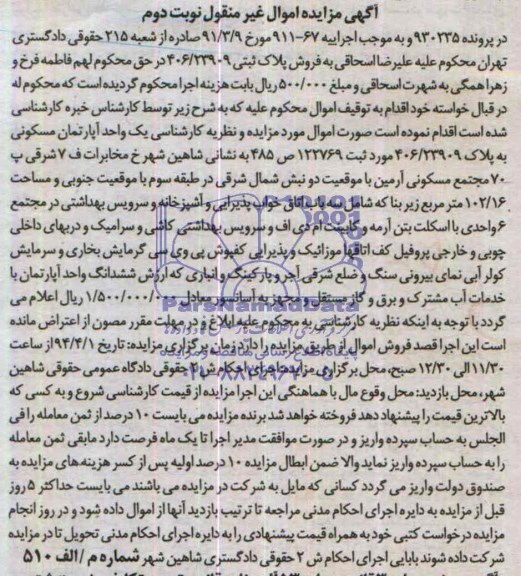 آگهی مزایده اموال غیر منقول نوبت دوم
در پرونده ۹۳۰۲۳۵ و به موجب اجراییه ۶۷-۹۱۱ مورخ ۹۱/۳/۹ صادره از شعبه ۲۱۵ حقوقی دادگستری
تهران محکوم علیه علیرضا اسحاقی به فروش پلاک ثبتی ۴۰۶/۲۳۹۰۹ در حق محکوم لهم فاطمه فرخ و
زهرا همگی به شهرت اسحاقی و مبلغ ۵۰۰/۰۰۰ ریال بابت هزینه اجرا محکوم گردیده است که محکوم له
در قبال خواسته خود اقدام به توقیف اموال محکوم علیه که به شرح زیر توسط کارشناس خبره کارشناسی
شده است اقدام نموده است صورت اموال مورد مزایده و نظریه کارشناسی یک واحد آپارتمان مسکونی
به پلاک ۴۰۶/۲۳۹۰۹ مورد ثبت ۱۲۲۷۶۹ ص ۴۸۵ به نشانی شاهین شهر خ مخابرات ف ۷ شرقی پ
۷۰ مجتمع مسکونی آرمین با موقعیت دو نبش شمال شرقی در طبقه سوم با موقعیت جنوبی و مساحت
۱۰۲/۱۶ متر مربع زیر بنا که شامل سه باب اتاق خواب پذیرایی و آشپزخانه و سرویس بهداشتی در مجتمع
۶ واحدی با اسکلت بتن آرمه و کابینت ام دی اف و سرویس بهداشتی کاشی و سرامیک و دربهای داخلی
چوبی و خارجی پروفیل کف اتاقها موزائیک و پذیرایی کفپوش پی وی سی گرمایش بخاری و سرمایش
کولر آبی نمای بیرونی سنگ و ضلع شرقی آجر و پارکینگ و انباری که ارزش ششدانگ واحد آپارتمان با
خدمات آب مشترک و برق و گاز مستقل و مجهز به آسانسور معادل ۱/۵۰۰/۰۰۰/۰۰۰ ریال اعلام می
گردد با توجه به اینکه نظریه کارشناسی به محکوم علیه ابلاغ و در مهلت مقرر مصون از اعتراض مانده
است این اجرا قصد فروش اموال از طریق مزایده را دارد زمان برگزاری مزایده: تاریخ ۹۴/۴/۱ از ساعت
۱۱/۳۰ الی ۱۲/۳۰ صبح، محل برگزاری مزایده: اجرای احکام ش ۲ حقوقی دادگاه عمومی حقوقی شاهین
شهر، محل بازدید: محل وقوع مال با هماهنگی این اجرا مزایده از قیمت کارشناسی شروع و به کسی که
بالاترین قیمت را پیشنهاد دهد فروخته خواهد شد برنده مزایده می بایست ۱۰ درصد از ثمن معامله را فی
المجلس به حساب سپرده واریز و در صورت موافقت مدیر اجرا تا یک ماه فرصت دارد مابقی ثمن معامله
را به حساب سپرده واریز نماید والا ضمن ابطال مزایده ۱۰ درصد اولیه پس از کسر هزینه های مزایده به
صندوق دولت واریز می گردد کسانی که مایل به شرکت در مزایده می باشند می بایست حداکثر ۵ روز
قبل از مزایده به دایره اجرای احکام مدنی مراجعه تا ترتیب بازدید آنها از اموال داده شود و در روز انجام
مزایده درخواست کتبی خود به همراه قیمت پیشنهادی را به دایره اجرای احکام مدنی تحویل تا در مزایده
شرکت داده شوند بابایی اجرای احکام ش ۲ حقوقی دادگستری شاهین شهر شماره م/الف ۵۱۰
ParsNamadData